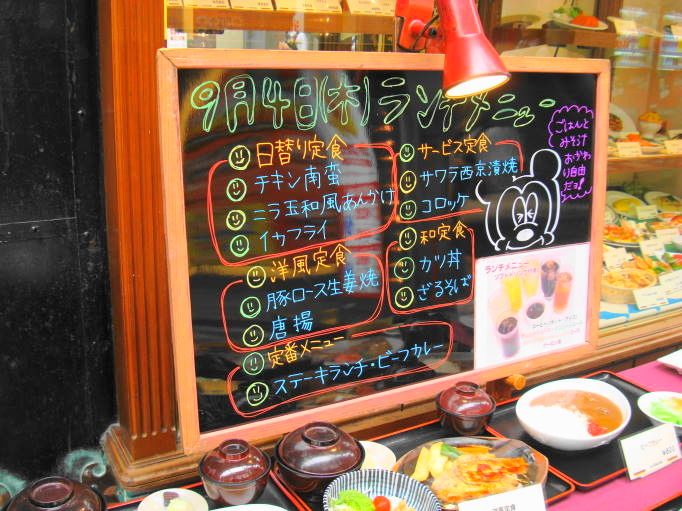 9月4日(木)ランチメニュー
日替り定食
チキン南蛮
ニラ玉和風あんかけ
イカフライ
洋風定食
豚ロース生姜焼
唐揚
定番メニュー
ステーキランチ・ビーフカレー
サービス定食
サワラ西京漬焼
コロッケ
和定食
カツ丼
ざるそば
ごはんと
みそ汁
おかわ
り自由
だョ!
ランチメニュー